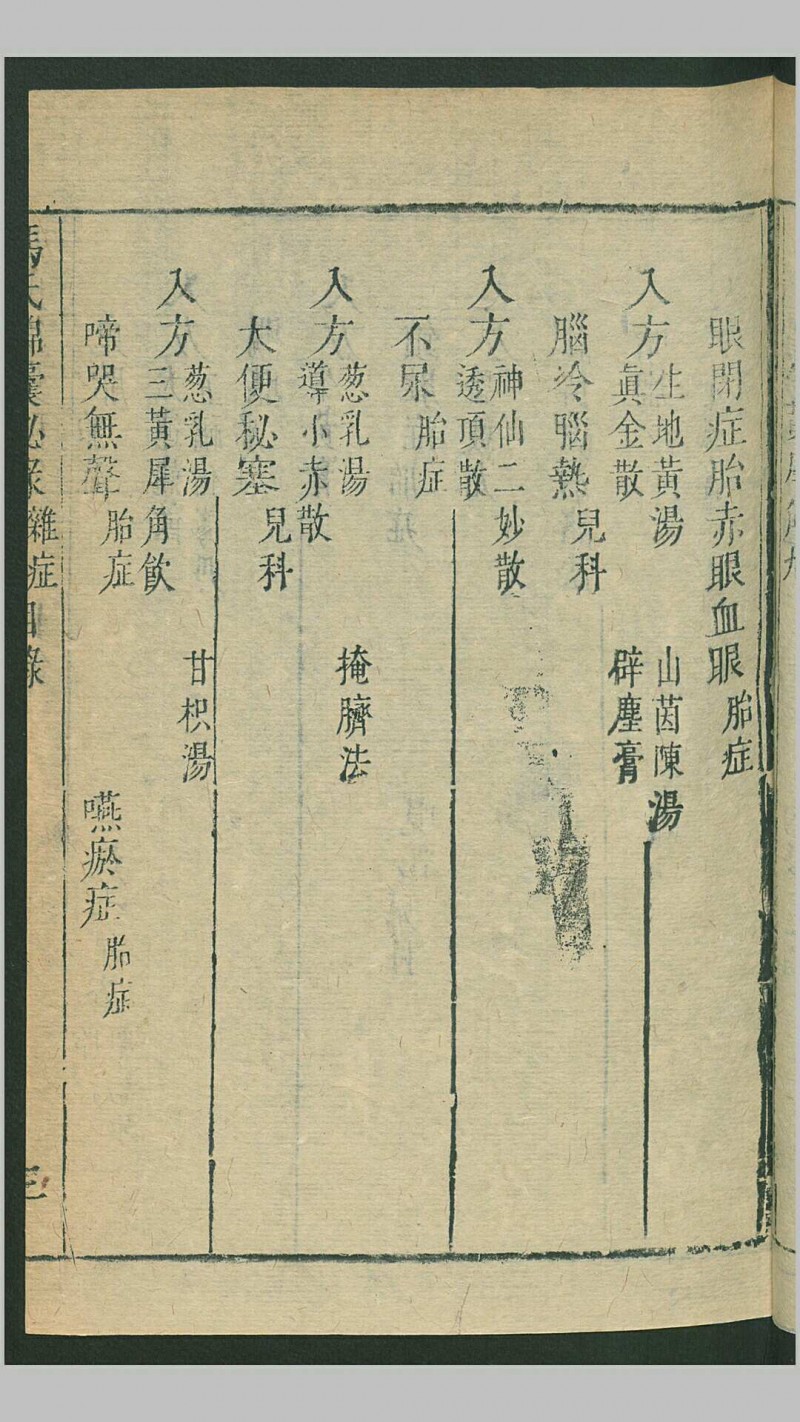 眼閉症胎赤眼血眼 胎症
入方 生地黃湯 山茵陳湯
眞金散 辟塵膏
腦冷腦熱 兒科
入方 神仙二妙散
透頂散
不尿 胎症
入方 葱乳湯 掩臍法
導小赤散
大便秘塞 兒科
入方 葱乳湯 甘枳湯
三黃犀角飲
啼哭無聲 胎症 嚥瘀症 胎症
馮氏錦囊秘录雜症目錄 三